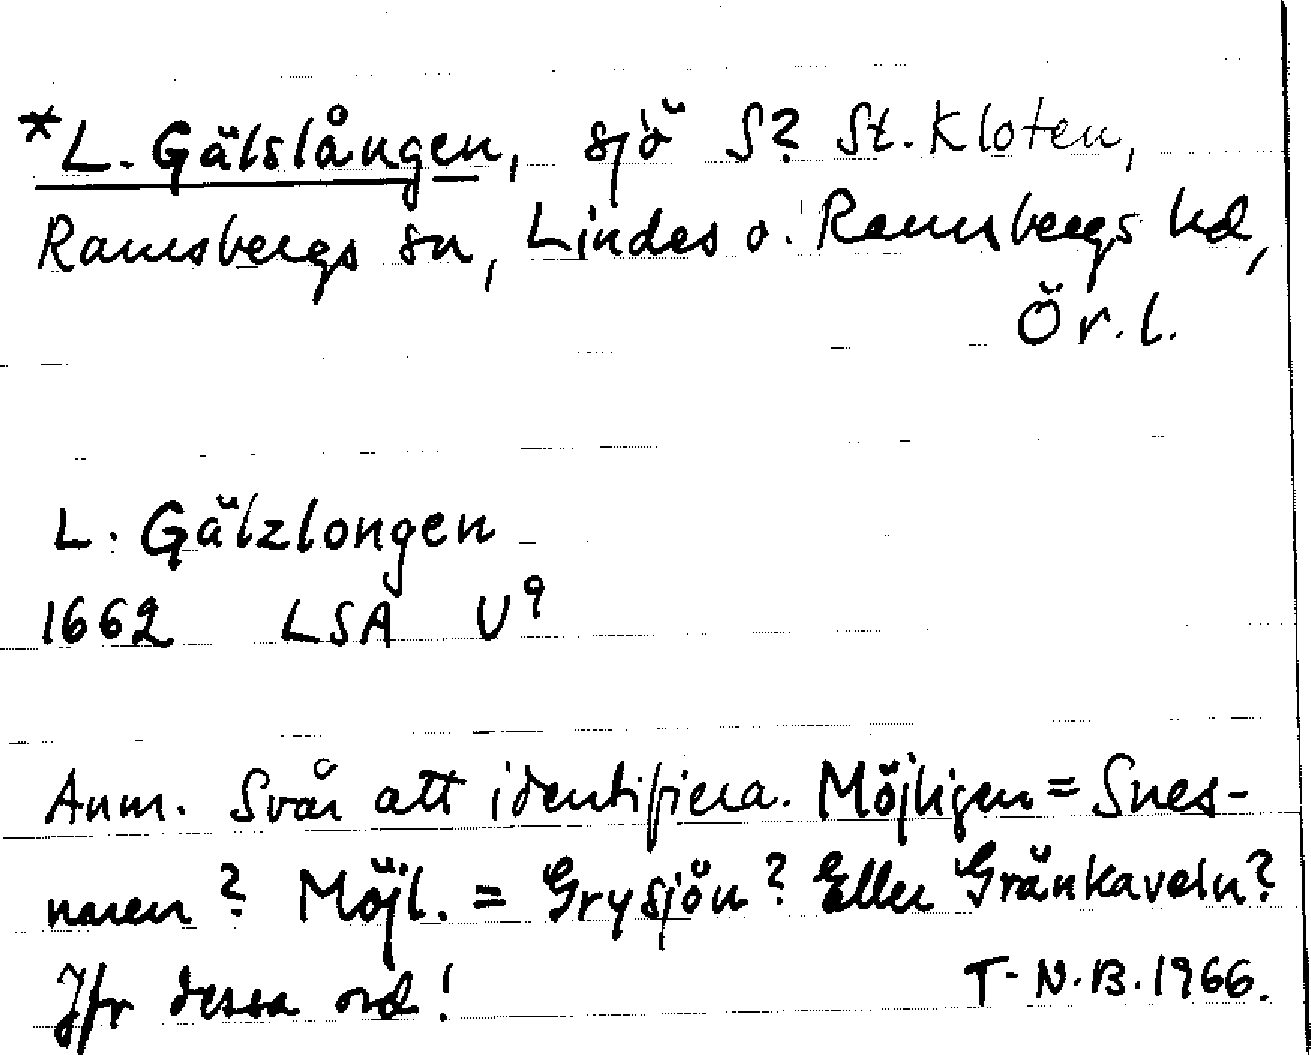 *L. Gälslången, sjö S? St. Kloten,
Ramsbergs sn, Lindes o. Ramsbergs hd,
Ör. l.
L. Gälzlongen
1662 LSA U⁹
Anm. Svår att identifiera. Möjligen = Snes-
naren? Möjl. = Grysjön? Eller Gränkaveln?
Jfr dessa ord!
T. N. B. 1966.